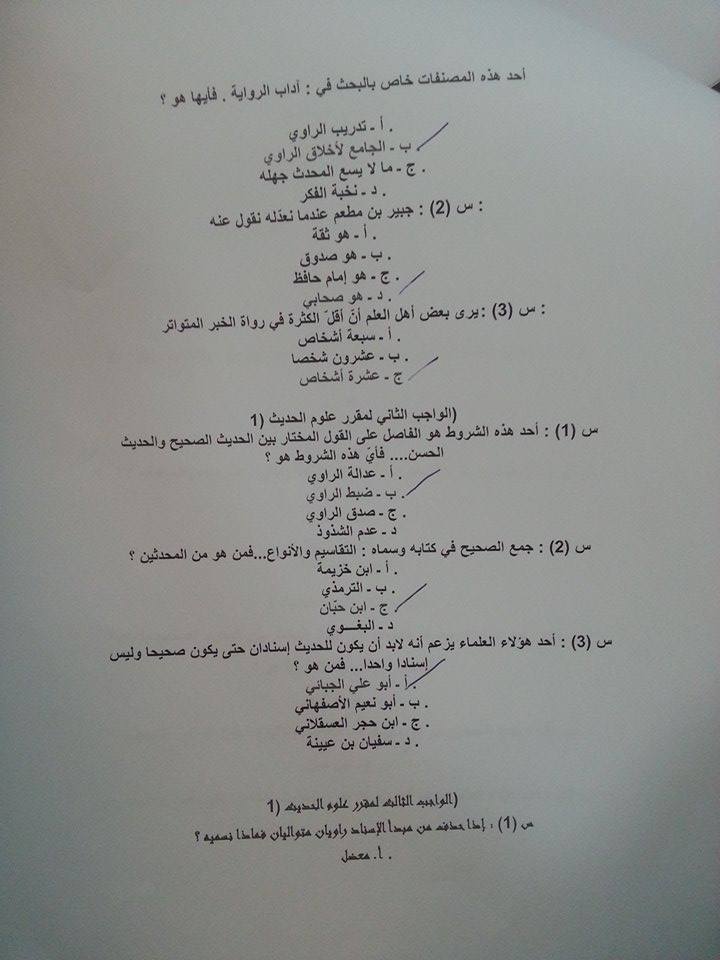 أحد هذه المصنفات خاص بالبحث في : آداب الرواية . فأيها هو ؟
. أ - تدريب الراوي
. ب - الجامع لأخلاق الراوي
. ج - ما لا يسع المحدث جهله
. د - نخبة الفكر
: س (2) : جبير بن مطعم عندما نعدّله نقول عنه
. أ - هو ثقة
. ب - هو صدوق
. ج - هو إمام حافظ
. د - هو صحابي
: س (3) :يرى بعض أهل العلم أنّ أقلّ الكثرة في رواة الخبر المتواتر
. أ - سبعة أشخاص
. ب - عشرون شخصا
ج - عشرة أشخاص
(الواجب الثاني لمقرر علوم الحديث (1
س (1) : أحد هذه الشروط هو الفاصل على القول المختار بين الحديث الصحيح والحديث
الحسن.... فأيّ هذه الشروط هو ؟
. أ - عدالة الراوي
. ب - ضبط الراوي
. ج - صدق الراوي
د - عدم الشذوذ
س (2) : جمع الصحيح في كتابه وسماه : التقاسيم والأنواع...فمن هو من المحدثين ؟
. أ - ابن خزيمة
. ب - الترمذي
. ج - ابن حبّان
د - البغـــوي
س (3) : أحد هؤلاء العلماء يزعم أنه لابد أن يكون للحديث إسنادان حتى يكون صحيحا وليس
إسنادا واحدا... فمن هو ؟
. أ - أبو علي الجبائي
ب - أبو نعيم الأصفهاني
. ج - ابن حجر العسقلاني
. د - سفيان بن عيينة
(الواجب الثالث لمقرر علوم الحديث (1
س (1) : إذا حذف من مبدأ الإسناد راويان متواليان فماذا نسميه ؟
. أ. معضل